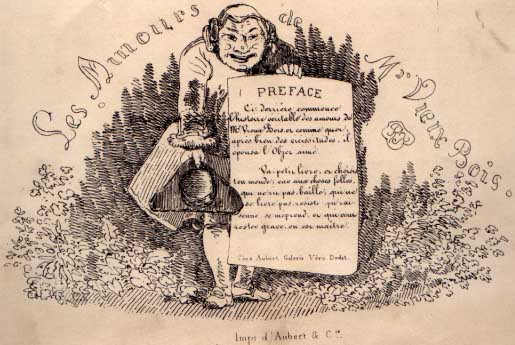 Les Amours de Mr Vieux Bois.
PREFACE
Ci derrière commence
l'histoire véritable des amours de
Mr Vieux Bois, et comme quoi,
après bien des vicissitudes, il
épousa l'Objet aimé.
Va petit livre, et choisis
ton monde; car aux choses folles,
qui ne rit pas, baille; qui ne
se livre pas, résiste; qui rai-
sonne, se méprend, et qui veut
rester grave, en est maître.
Chez Aubert Galerie Véro Dodat.
Imp. d'Aubert & Cie